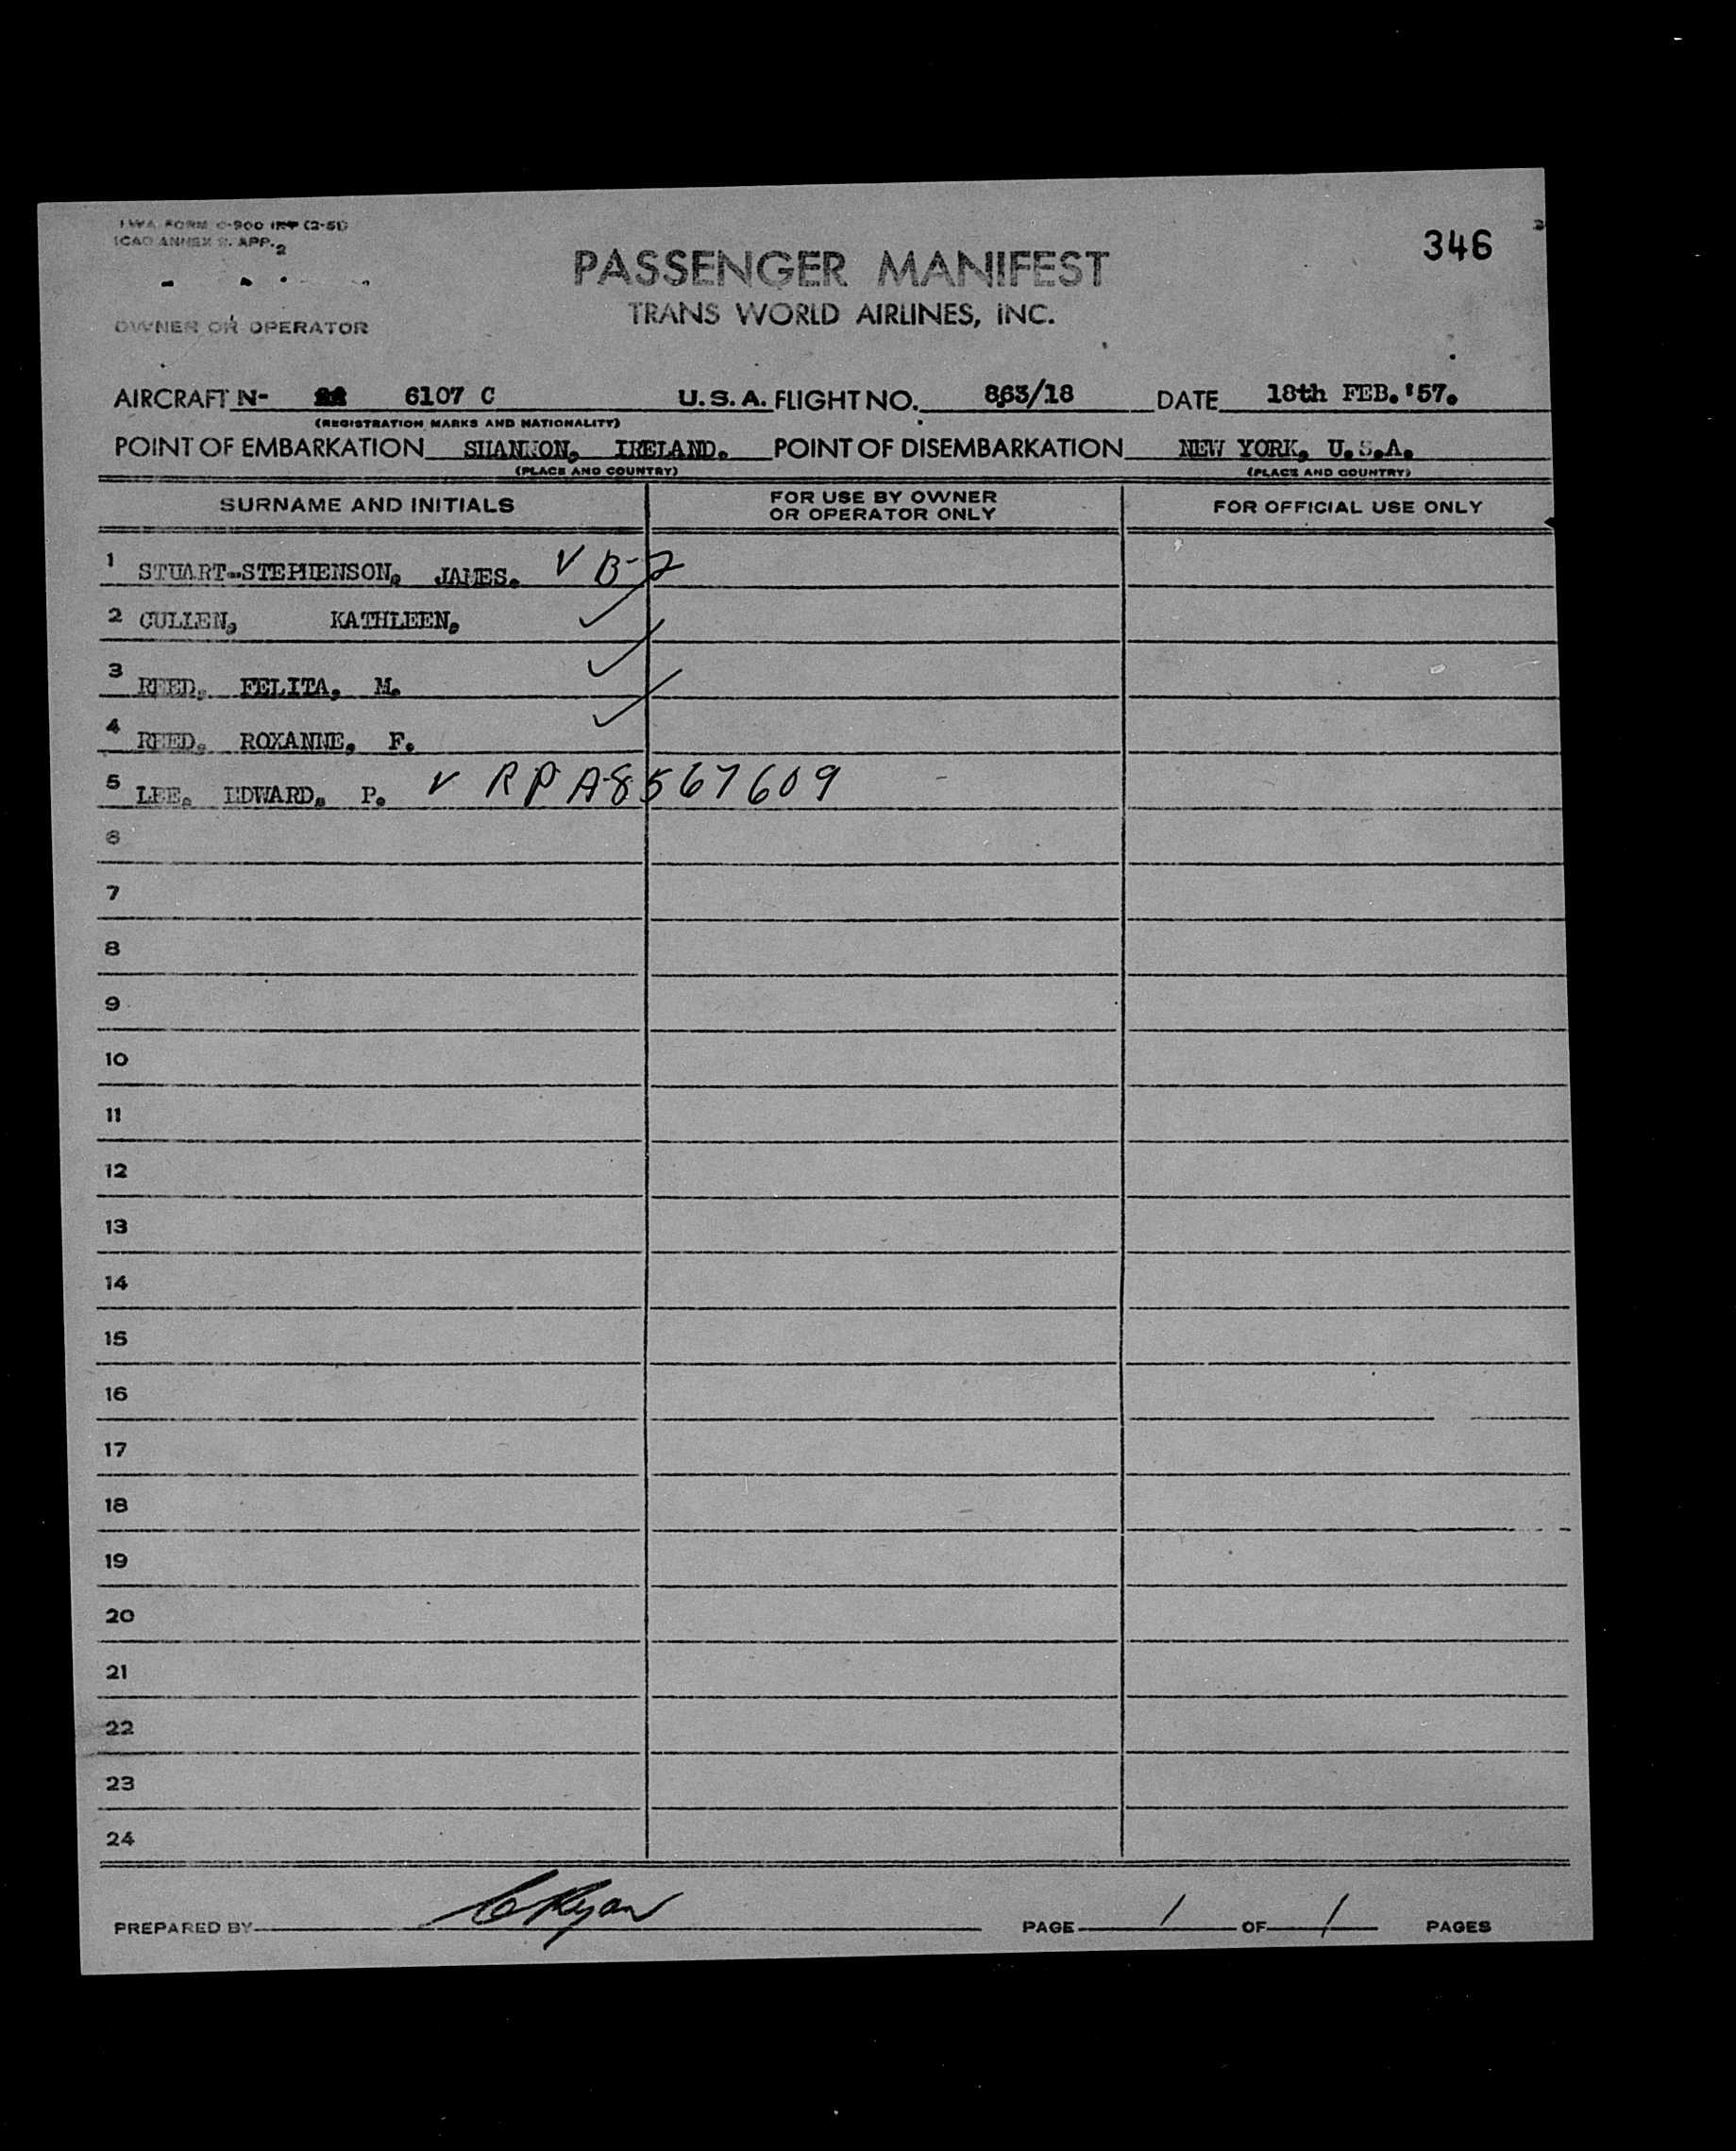 TWA FORM C-900 INT (2-51)
ICAO ANNEX 9. APP. 2
346
PASSENGER MANIFEST
TRANS WORLD AIRLINES, INC.
OWNER OR OPERATOR
AIRCRAFT N- 6107 C U.S.A. FLIGHT NO. 863/18 DATE 18th FEB.'57.
(REGISTRATION MARKS AND NATIONALITY)
POINT OF EMBARKATION SHANNON, IRELAND. POINT OF DISEMBARKATION NEW YORK, U.S.A.
(PLACE AND COUNTRY) (PLACE AND COUNTRY)
SURNAME AND INITIALS
FOR USE BY OWNER
OR OPERATOR ONLY
FOR OFFICIAL USE ONLY
1 STUART-STEPHENSON, JAMES. V B-2
2 CULLEN, KATHLEEN, ✓
3 REED, FELITA, M. ✓
4 REED, ROXANNE, F. ✓
5 LEE, EDWARD, P. V RP A8567609
6
7
8
9
10
11
12
13
14
15
16
17
18
19
20
21
22
23
24
PREPARED BY CRyan PAGE 1 OF 1 PAGES